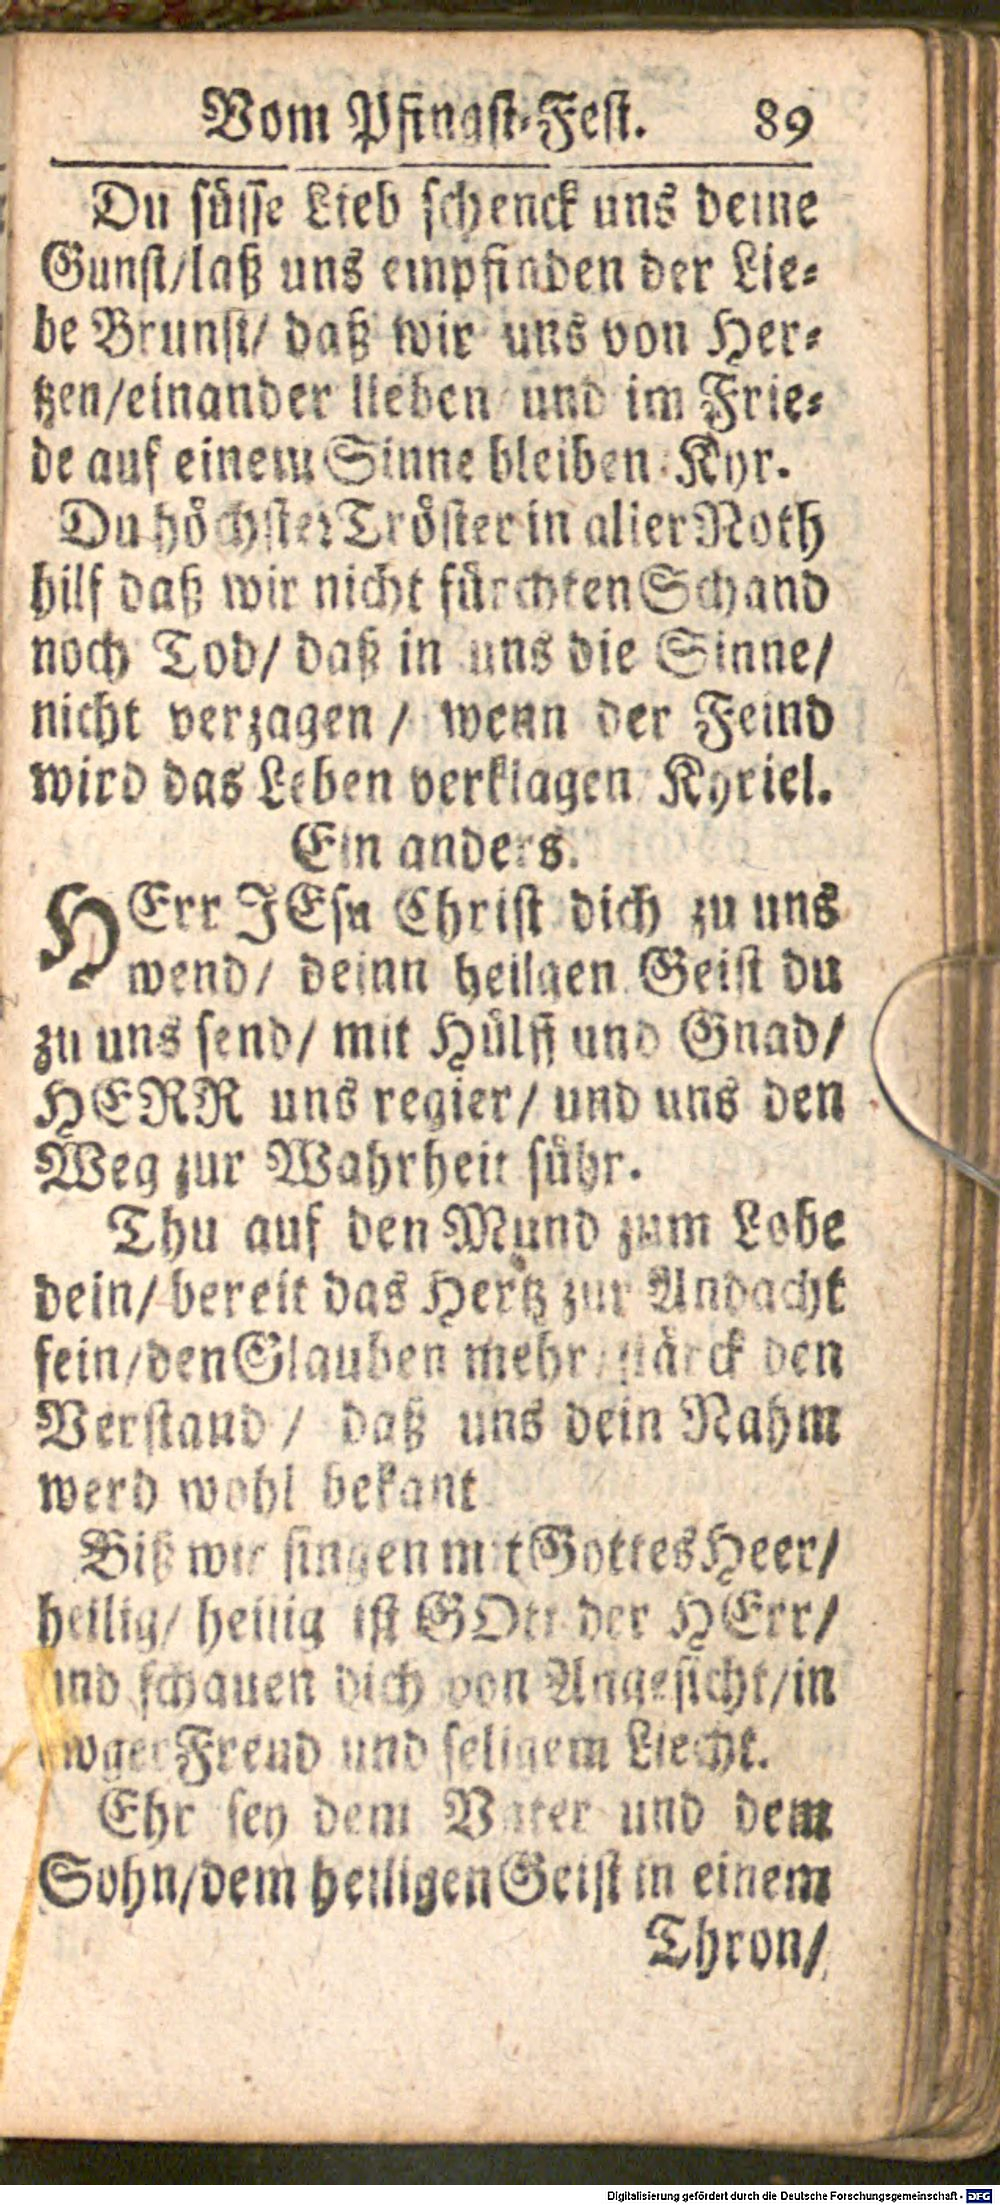 Vom Pfingst-Fest. 89
Du süsse Lieb schenck uns deine
Gunst/laß uns empfinden der Lie-
be Brunst/ daß wir uns von Her-
tzen/einander lieben und im Frie-
de auf einem Sinne bleiben Kyr.
Du höchster Tröster in aller Noth
hilf daß wir nicht fürchten Schand
noch Tod/ daß in uns die Sinne/
nicht verzagen / wenn der Feind
wird das Leben verklagen Kyriel.
Ein anders.
HErr JEsu Christ dich zu uns
wend/ deinn heilgen Geist du
zu uns send/ mit Hülff und Gnad/
HERR uns regier/ und uns den
Weg zur Wahrheit führ.
Thu auf den Mund zum Lobe
dein/ bereit das Hertz zur Andacht
fein/den Glauben mehr/ stärck den
Verstand / daß uns dein Nahm
werd wohl bekant
Biß wir singen mit Gottes Heer/
heilig/ heilig ist GOtt der HErr/
und schauen dich von Angesicht/in
ewger Freud und seligem Liecht.
Ehr sey dem Vater und dem
Sohn/dem heiligen Geist in einem
Thron/
Digitalisierung gefördert durch die Deutsche Forschungsgemeinschaft - DFG